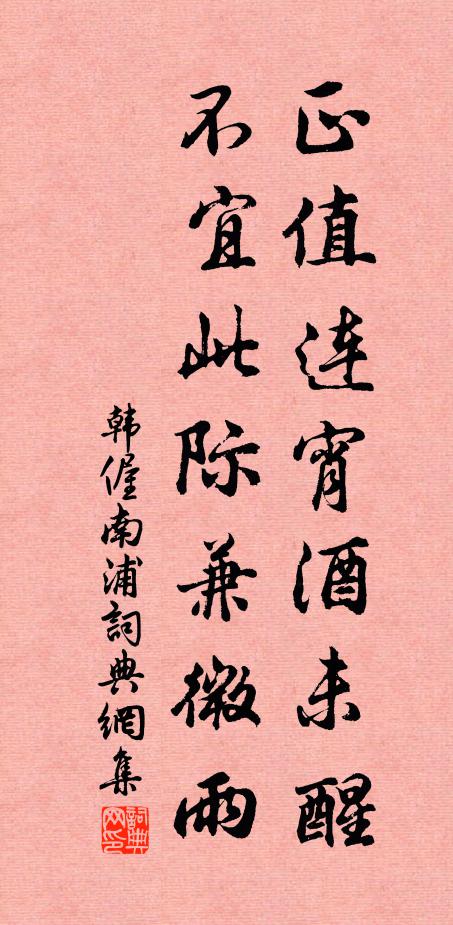 正值连宵酒未醒
不宜此际兼微雨
韩偓南浦詞典網集
詞典网印